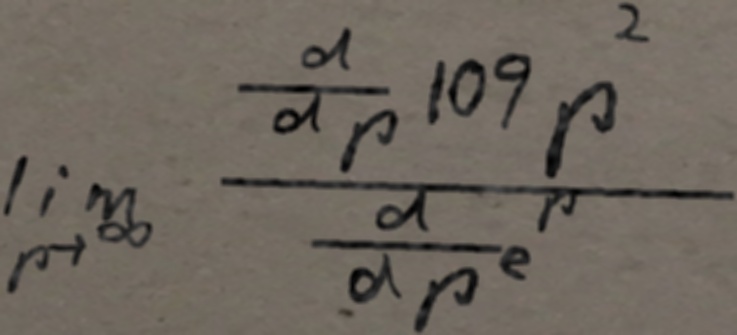 lim_{p→∞} \frac{\frac{d}{dp} log p^2}{\frac{d}{dp} e^p}